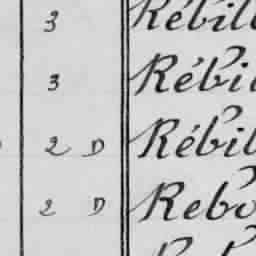 3 Rébill
3 Rébi
2 D Rébil
2 D Rebo